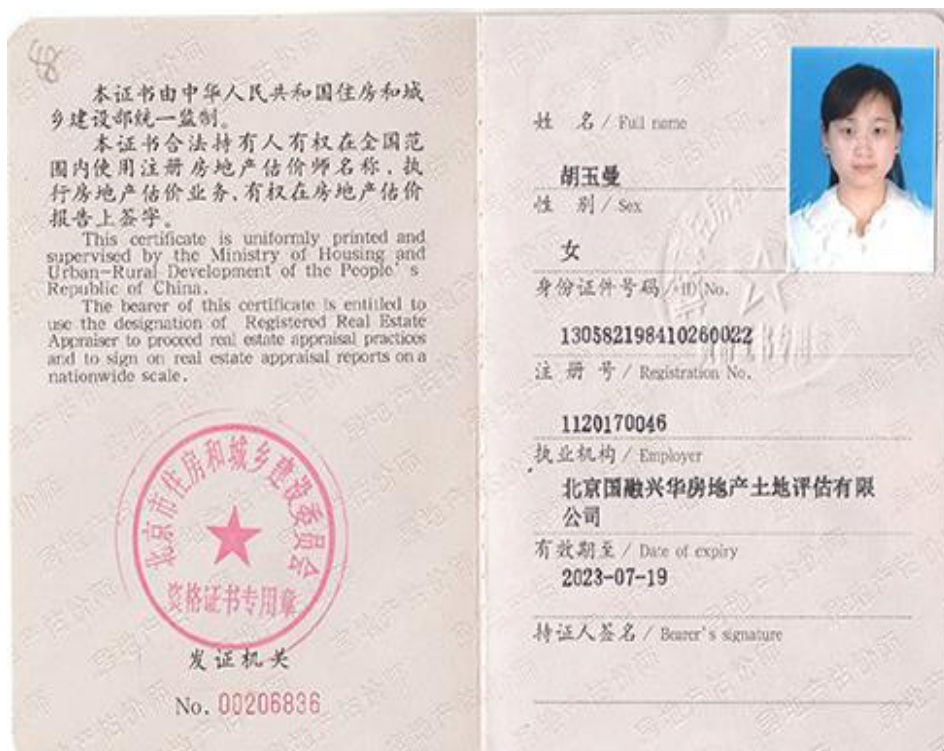 48
本证书由中华人民共和国住房和城
乡建设部统一监制。
本证书合法持有人有权在全国范
围内使用注册房地产估价师名称,执
行房地产估价业务,有权在房地产估价
报告上签字。
This certificate is uniformly printed and
supervised by the Ministry of Housing and
Urban-Rural Development of the People's
Republic of China.
The bearer of this certificate is entitled to
use the designation of Registered Real Estate
Appraiser to proceed real estate appraisal practices
and to sign on real estate appraisal reports on a
nationwide scale.
北京市住房和城乡建设委员会
资格证书专用章
发证机关
No. 00206836
姓 名 / Full name
胡玉曼
性 别 / Sex
女
身份证件号码 / ID No.
130582198410260022
注 册 号 / Registration No.
1120170046
执业机构 / Employer
北京国融兴华房地产土地评估有限
公司
有效期至 / Date of expiry
2023-07-19
持证人签名 / Bearer's signature